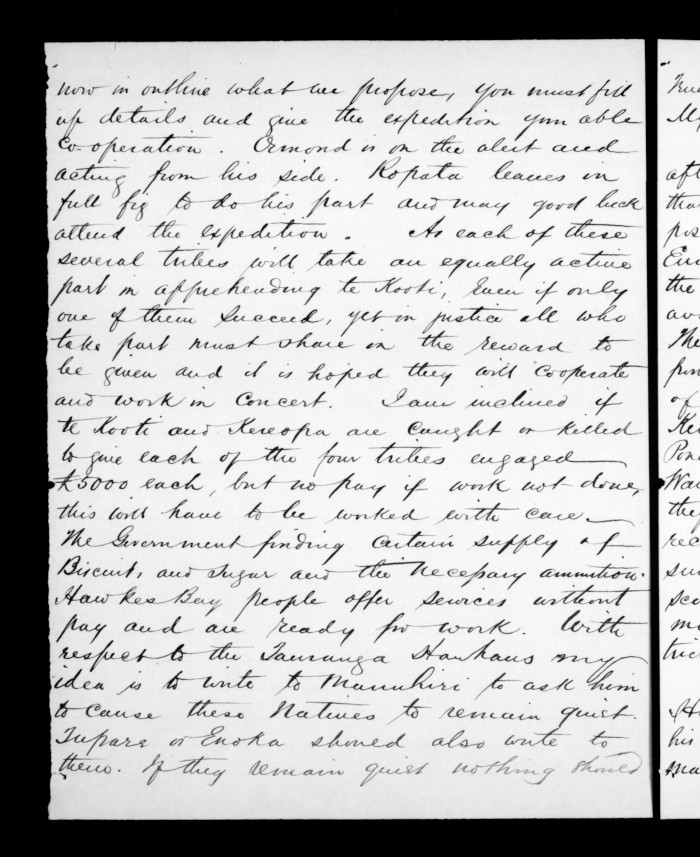 now in outline what we propose, you must fill
up details and give the expedition your able
co-operation. Ormond is on the alert and
acting from his side. Ropata leaves in
full fig to do his part and may good luck
attend the expedition. As each of these
several tribes will take an equally active
part in apprehending te Kooti, even if only
one of them succeed, yet in justice all who
take part must share in the reward to
be given and it is hoped they will cooperate
and work in concert. I am inclined if
te Kooti and Kereopa are caught or killed
to give each of the four tribes engaged
£5000 each, but no pay if work not done,
this will have to be worked with care_
The Government finding certain supply of
Biscuit, and sugar and the necessary ammition.
Hawkes Bay people offer services without
pay and are ready for work. With
respect to the Tauranga Hauhaus my
idea is to write to Manuhiri to ask him
to cause these Natives to remain quiet.
Tupara or Enoka should also write to
them. If they remain quiet nothing should